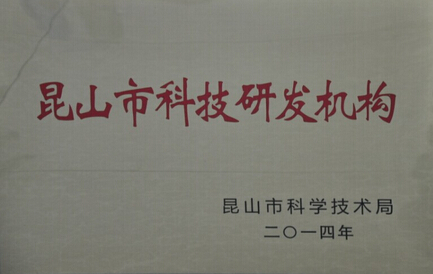 昆山市科技研发机构
昆山市科学技术局
二〇一四年